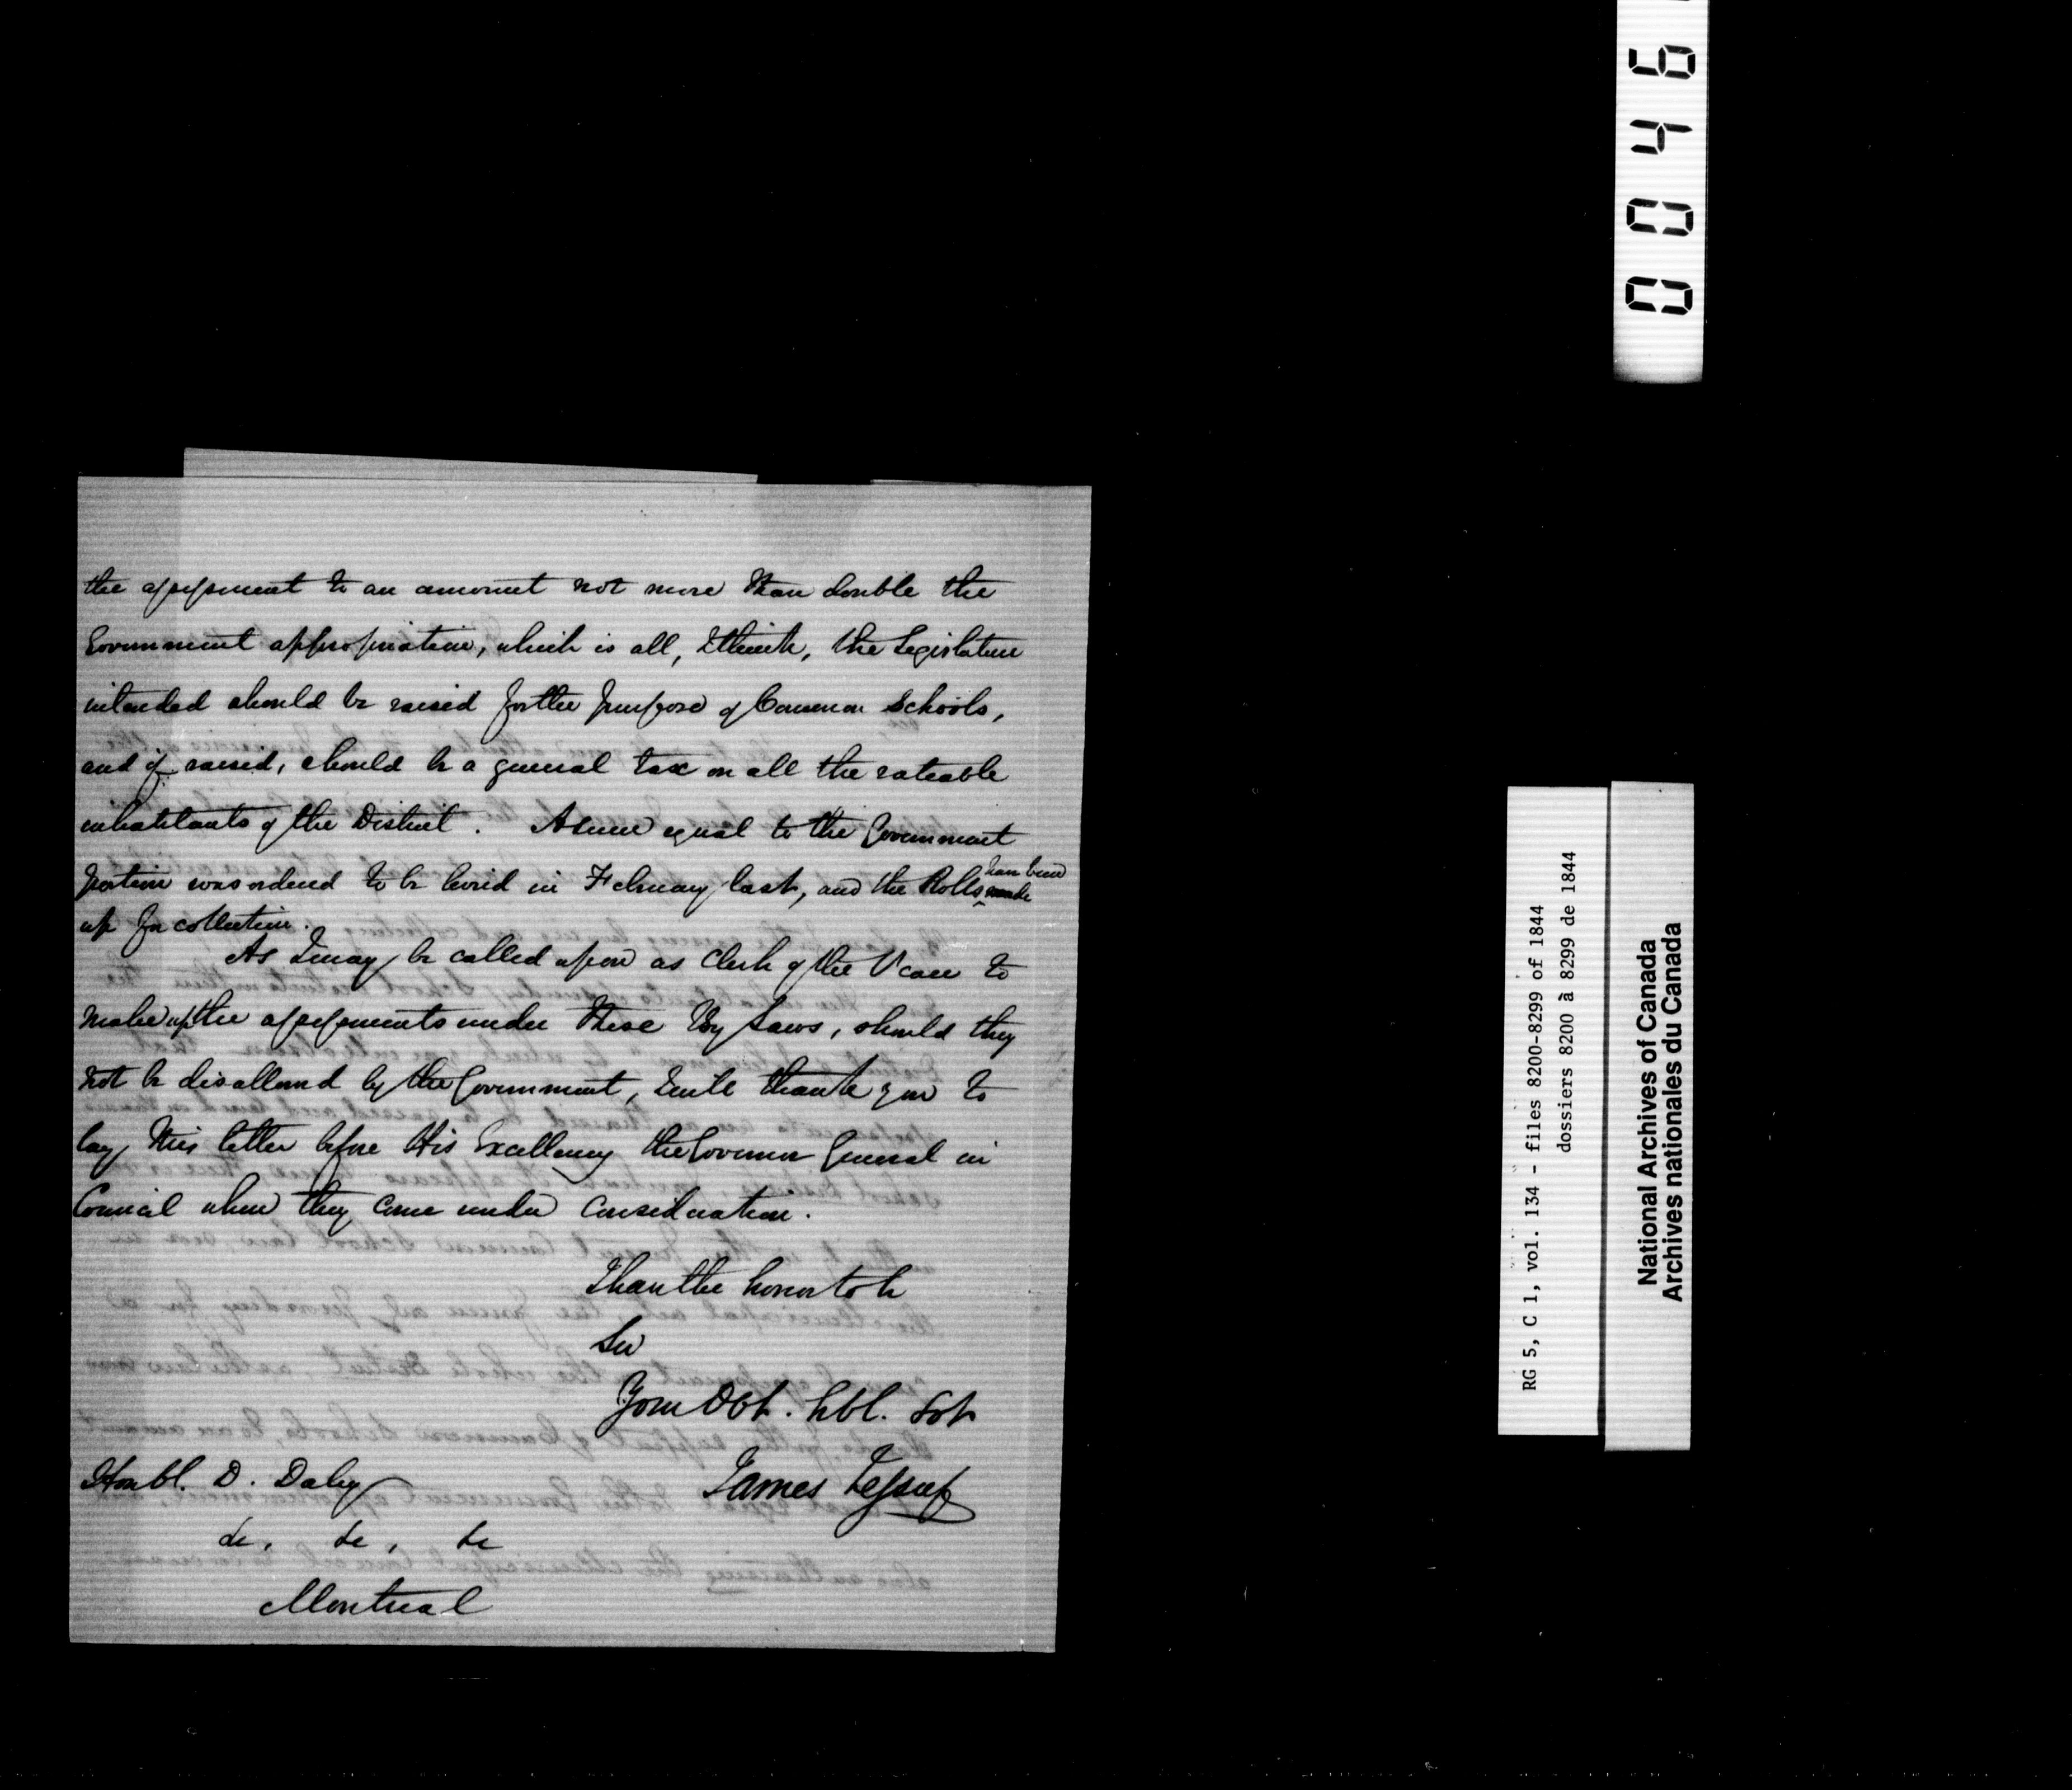 the assessment to an amount not more than double the
Government appropriation, which is all, I think, the Legislature
intended should be raised for the purpose of Common Schools,
and if raised, should be a general tax on all the rateable
inhabitants of the District. A sum equal to the Government
portion was ordered to be levied in February last, and the Rolls have been made
up for collection.
As I may be called upon as Clerk of the Peace to
make up the assessments under these By Laws, should they
not be disallowed by the Government, I will thank you to
lay this letter before His Excellency the Governor General in
Council when they come under consideration.
I have the honor to be
Sir
Your Obt. hbl. Svt
James Jessup
Honbl. D. Daly
&c, &c, &c
Montreal
0046
RG 5, C 1, vol. 134 - files 8200-8299 of 1844
dossiers 8200 à 8299 de 1844
National Archives of Canada
Archives nationales du Canada